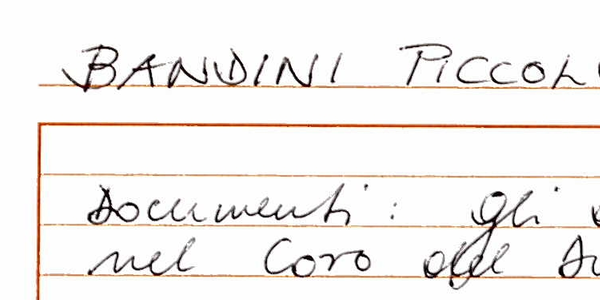 BANDINI PICCOL
Documenti: gli
nel Coro del